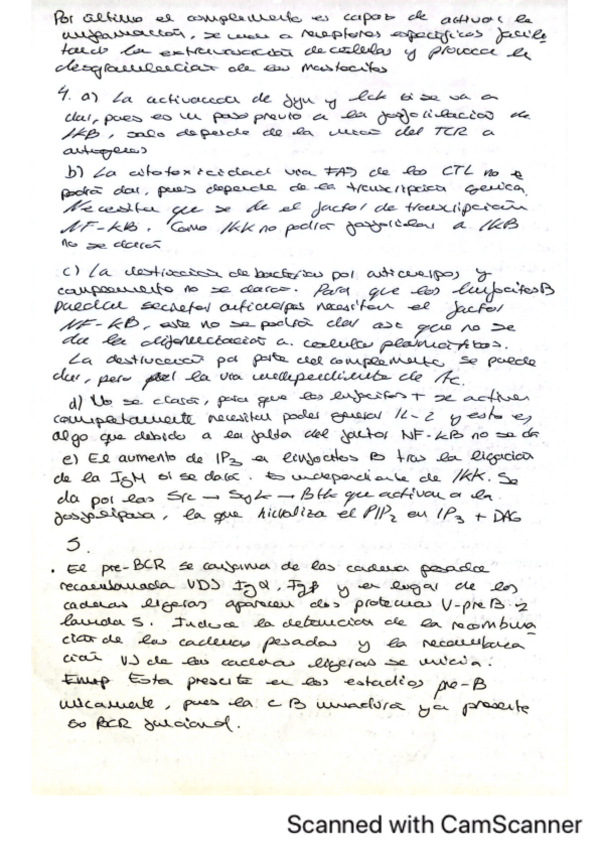 Por último el complemento es capaz de activar la
inflamación, se unen a receptores específicos facili-
tando la extravasación de células y provoca la
desgranulación de los mastocitos
4. a) La activación de fyn y lck si se va a
dar, pues es un paso previo a la fosforilación de
IKB, solo depende de la unión del TCR a
antígenos
b) La citotoxicidad vía FAS de los CTL no se
podrá dar, pues depende de la transcripción génica.
Necesita que se de el factor de transcripción
NF-KB. Como IKK no podrá fosforilar a IKB
no se dará
c) La destrucción de bacterias por anticuerpos y
complemento no se dará. Para que los linfocitos B
puedan secretar anticuerpos necesitan el factor
NF-KB, este no se podrá dar así que no se
da la diferenciación a células plasmáticas.
La destrucción por parte del complemento se puede
dar, pero por la vía independiente de Ac.
d) No se dará, para que los linfocitos T se activen
completamente necesitan poder generar IL-2 y esto es
algo que debido a la falta del factor NF-KB no se da
e) El aumento de IP3 en linfocitos B tras la ligación
de la IgM si se dará. Es independiente de IKK. Se
da por las Src → Syk → Btk que activan a la
fosfolipasa, la que hidroliza el PIP2 en IP3 + DAG
5.
· El pre-BCR se conforma de las cadena pesada
recombinada VDJ Igα, Igβ y en lugar de las
cadenas ligeras aparecen dos proteínas V-pre B y
lambda 5. Induce la detención de la recombina
ción de las cadenas pesadas y la recombina
ción VJ de las cadenas ligeras se inicia.
Esta presente en los estadios pre-B
únicamente, pues la C B inmadura ya presenta
su BCR funcional.
Scanned with CamScanner